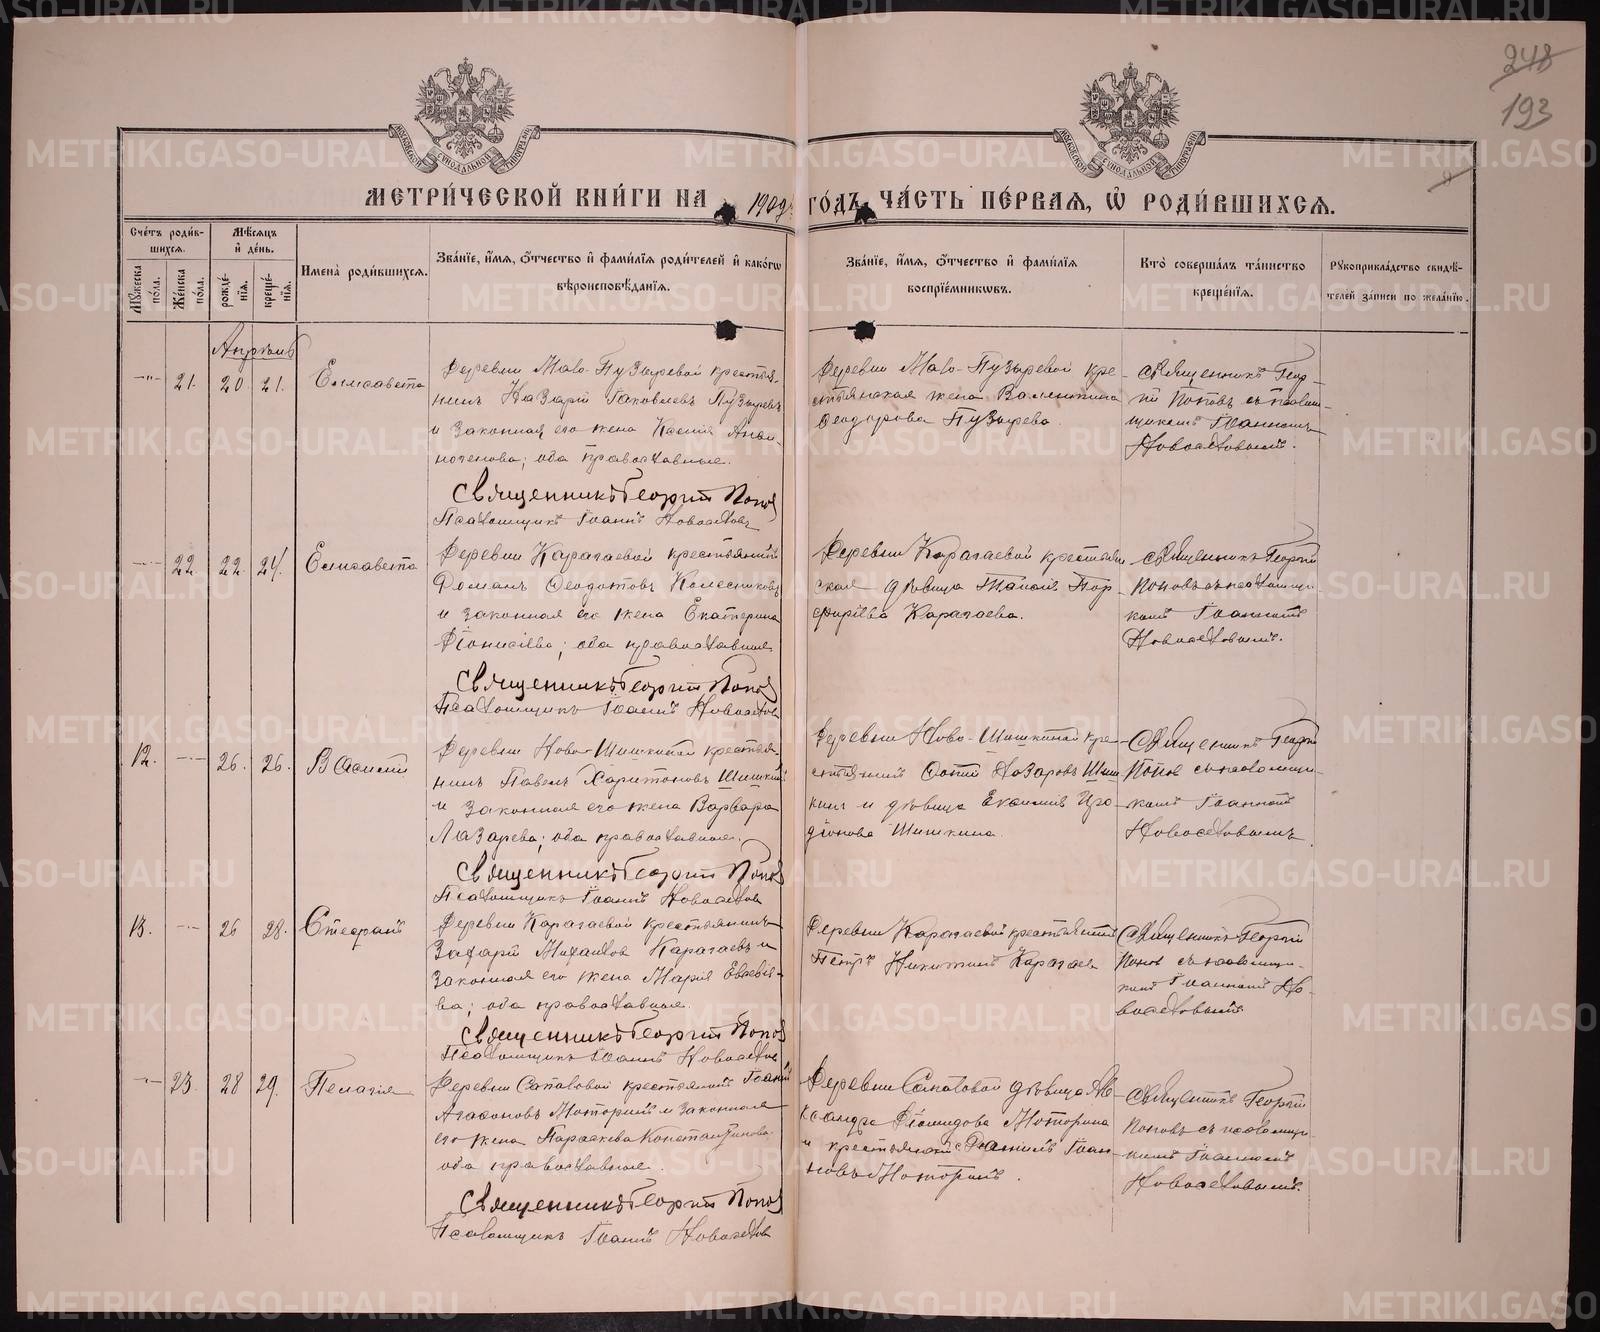 248
193
МЕТРИ́ЧЕСКОЙ КНИ́ГИ НА 1909 ГО́ДЪ, ЧА́СТЬ ПЕ́РВАЯ, Ѡ҆ РОДИ́ВШИХСЯ.
Сче́тъ роди́в-
шихся.
Мꙋ́жеска по́ла.
Же́нска по́ла.
Мѣ́сяцъ
и҆ де́нь.
рожде́-
нїя.
креще́-
нїя.
Имена̀ роди́вшихся.
Зва́нїе, и҆́мя, ѻ҆́тчество и҆ фами́лїя роди́телей и҆ како́гѡ
вѣроисповѣ́данїя.
Зва́нїе, и҆́мя, ѻ҆́тчество и҆ фами́лїя
воспрїе́мникѡвъ.
Кто̀ соверша́лъ та́инство
креще́нїя.
Рꙋкоприкла́дство свидѣ́-
телей за́писи по жела́нїю.
Апрѣль
21. 20 21. Елисавета
Деревни Мало-Пузыревой крестья-
нинъ Назарій Іаковлевъ Пузыревъ
и законная его жена Ксенія
оба православные.
Священникъ Георгій Поповъ
Псаломщикъ Іоаннъ Новоселовъ
Деревни Мало-Пузыревой кре-
стьянская жена Валентина
Ѳеодорова Пузырева.
Священникъ Геор-
гій Поповъ съ псалом-
щикомъ Іоанномъ
Новоселовымъ.
22. 22. 24. Елисавета
Деревни Карагаевой крестьянинъ
Ѳеодотовъ Колесниковъ
и законная его жена Екатерина
Діонисіева; оба православные
Священникъ Георгій Поповъ
Псаломщикъ Іоаннъ Новоселовъ
Деревни Карагаевой крестьян-
ская дѣвица Таисія Пор-
фиріева Карагаева.
Священникъ Георгій
Поповъ съ псаломщи-
комъ Іоанномъ
Новоселовымъ.
12. 26. 26. Василій
Деревни Ново-Шишкиной крестья-
нинъ Павелъ Харитоновъ Шишкинъ
и законная его жена Варвара
Лазарева; оба православные.
Священникъ Георгій Поповъ
Псаломщикъ Іоаннъ Новоселовъ
Деревни Ново-Шишкиной кре-
стьянинъ Назаровъ Шиш-
кинъ и дѣвица Евдокія Иро-
діонова Шишкина.
Священникъ Георгій
Поповъ съ псаломщи-
комъ Іоанномъ
Новоселовымъ.
13. 26 28. Стефанъ
Деревни Карагаевой крестьянинъ
Захарій Михайловъ Карагаевъ и
законная его жена Марія Евсевіе-
ва; оба православные.
Священникъ Георгій Поповъ
Псаломщикъ Іоаннъ Новоселовъ
Деревни Карагаевой крестьянинъ
Петръ Никитинъ Карагаевъ
Священникъ Георгій
Поповъ съ псаломщи-
комъ Іоанномъ Но-
воселовымъ.
23. 28 29. Пелагія
Деревни Сапоговой крестьянинъ Іоаннъ
Агафоновъ Моторинъ и законная
его жена Параскева Константинова
оба православные.
Священникъ Георгій Поповъ
Псаломщикъ Іоаннъ Новоселовъ
Деревни Сапоговой дѣвица Але-
ксандра Діомидова Моторина
и крестьянинъ Іоан-
новъ Моторинъ.
Священникъ Георгій
Поповъ съ псаломщи-
комъ Іоанномъ
Новоселовымъ.
METRIKI.GASO-URAL.RU